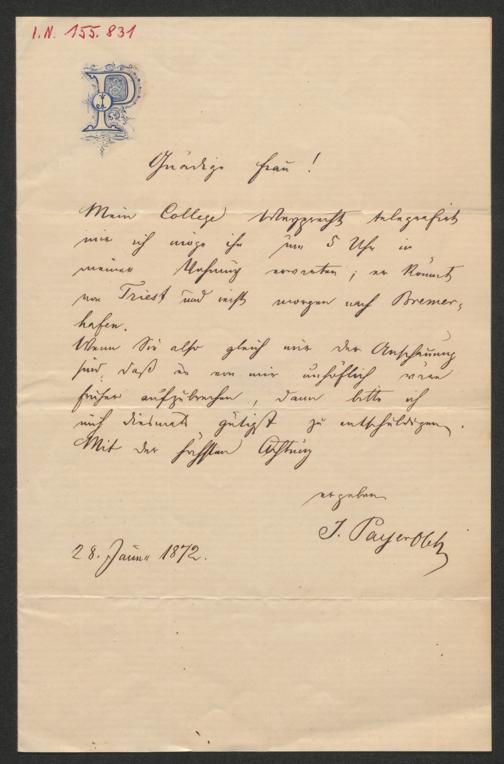 I.N. 155.831
P
Gnädige Frau!
Mein College Weyprecht telegrafirt
mir ich möge ihn um 5 Uhr in
meiner Wohnung erwarten; er kommt
von Triest und reist morgen nach Bremer-
hafen.
Wenn Sie also gleich mir der Anschauung
sind, daß es von mir unhöflich wäre
früher aufzubrechen, dann bitte ich
mich diesmal gütigst zu entschuldigen.
Mit der höchsten Achtung
ergeben
J. Payer Oblt
28. Jänner 1872.